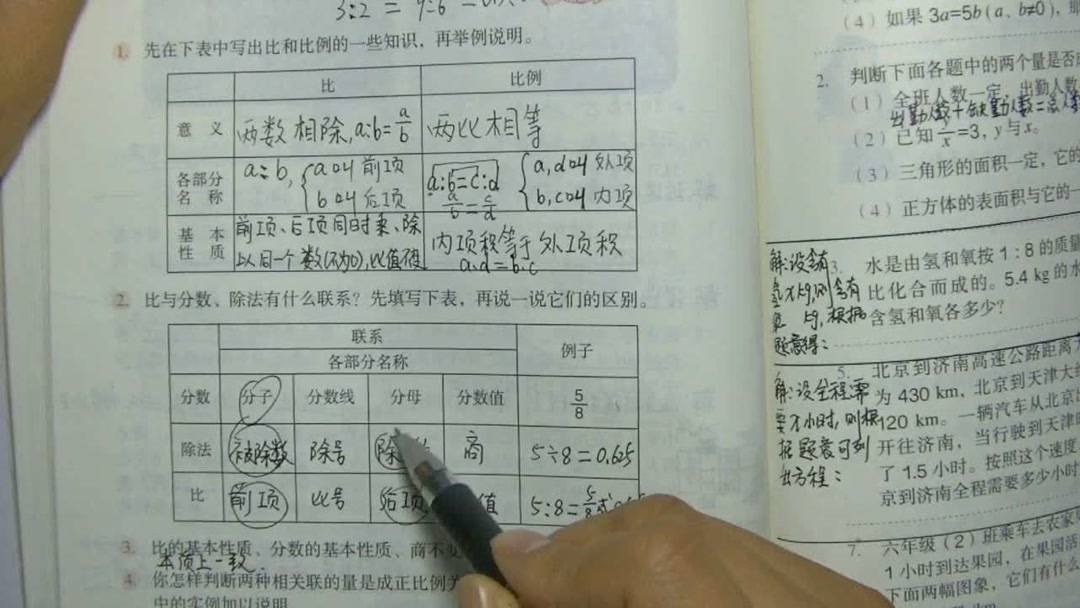 3:2 = 9:6
1. 先在下表中写出比和比例的一些知识，再举例说明。
比 比例
意 义 两数相除,a:b=a/b 两比相等
各部分名 称 a:b, a叫前项 b叫后项 a:b=c:d a/b=c/d a,d叫外项 b,c叫内项
基 本性 质 前项、后项同时乘、除以同一个数(不为0),比值 内项积等于外项积 a·d=b·c
2. 比与分数、除法有什么联系？先填写下表，再说一说它们的区别。
联系
各部分名称 例子
分数 分子 分数线 分母 分数值 5/8
除法 被除数 除号 除 商 5÷8=0.625
比 前项 比号 后项 值 5:8=5/8
3. 比的基本性质、分数的基本性质、商不
本质上一致.
4. 你怎样判断两种相关联的量是成正比例
中的实例加以说明
(4) 如果 3a=5b(a、b≠0)，
2. 判断下面各题中的两个量是否
(1) 全班人数一定，出勤人数
出勤人数+缺勤人数=总人数
(2) 已知 y/x=3, y与x。
(3) 三角形的面积一定，它的
(4) 正方体的表面积与它的一
3. 水是由氢和氧按 1:8 的质量
比化合而成的。5.4 kg 的水
含氢和氧各多少？
解:设含有
氢x kg,则含有
根据
题意得:
5. 北京到济南高速公路距离
为 430 km，北京到天津大
120 km。一辆汽车从北京
开往济南，当行驶到天津
了 1.5 小时。按照这个速度
京到济南全程需要多少小时
解:设全程需
要x小时,则根
据题意可列
出方程:
7. 六年级（2）班乘车去农家
1 小时到达果园，在果园活
下面两幅图象，它们有什么